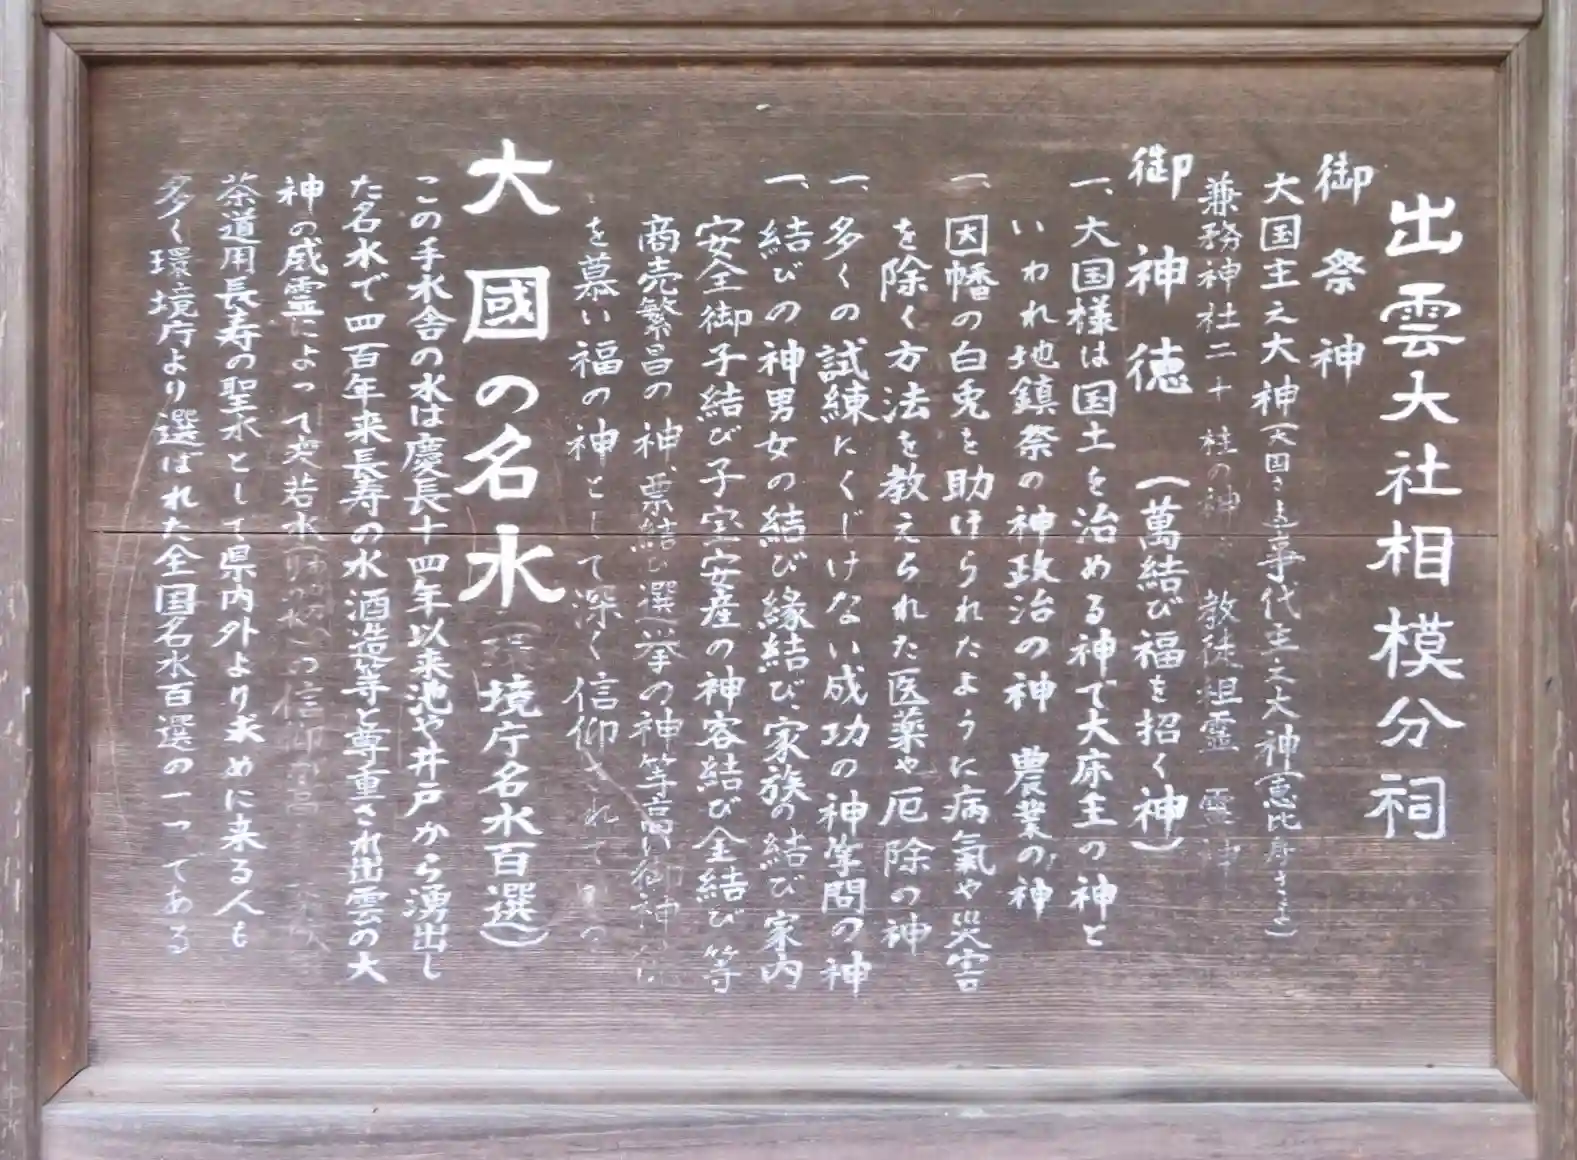 出雲大社相模分祠
御祭神
大国主之大神(大国さま)事代主之大神(恵比寿さま)
兼務神社二十 柱の神 教徒祖霊 霊神
御神徳 (萬結び福を招く神)
一、大国様は国土を治める神で大床主の神と
いわれ地鎮祭の神政治の神 農業の神
一、因幡の白兎を助けられたように病氣や災害
を除く方法を教えられた医薬や厄除の神
一、多くの試練にくじけない成功の神学問の神
一、結びの神男女の結び縁結び、家族の結び家内
安全御子結び子宝安産の神客結び金結び等
商売繁昌の神、票結び選挙の神等高い御神徳
を慕い福の神として深く信仰されて
大國の名水 (環境庁名水百選)
この手水舎の水は慶長十四年以来池や井戸から湧出し
た名水で四百年来長寿の水酒造等と尊重され出雲の大
神の威霊によって 若水 信仰
茶道用長寿の聖水として県内外より求めに来る人も
多く環境庁より選ばれた全国名水百選の一つである